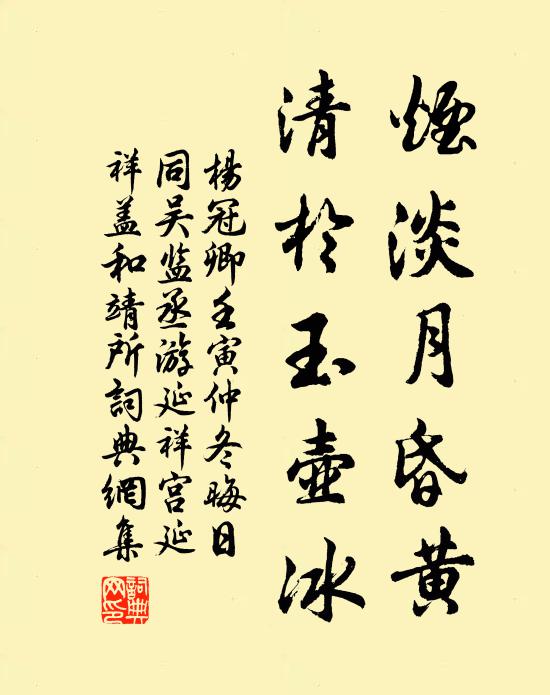 煙淡月昏黄
清於玉壺冰
楊冠卿壬寅仲冬晦日
同吴监丞游延祥宫延
祥盖和靖所詞典網集
詞典网印